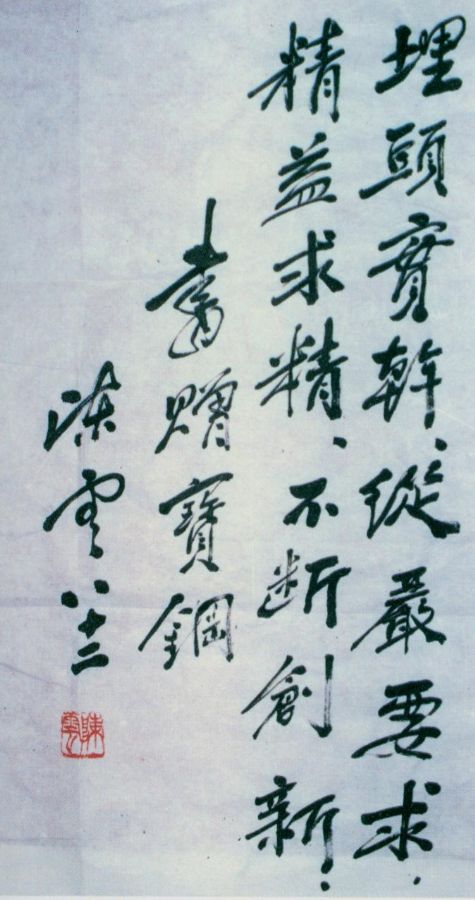 埋頭實幹、從嚴要求、
精益求精、不断創新！
書贈寶鋼
陈云 八十二
陳雲